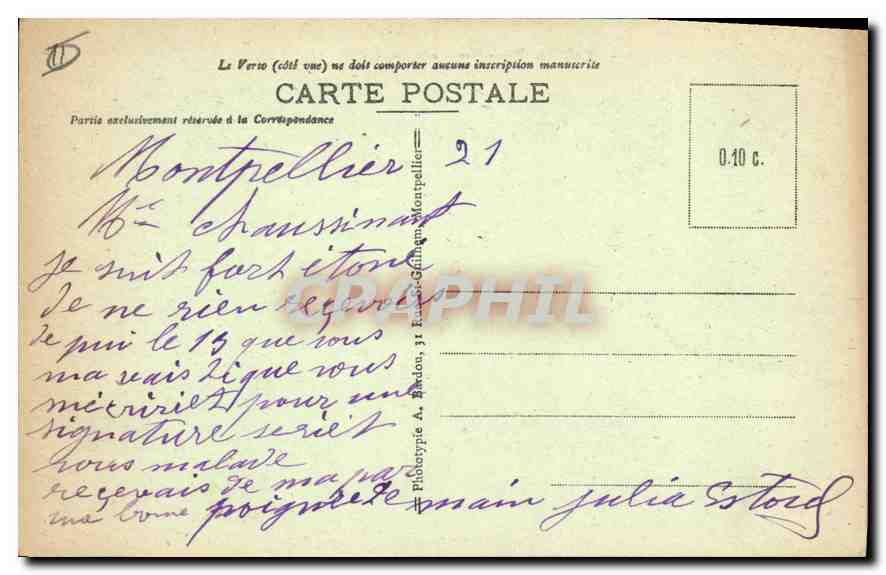 11
Le Verso (côté vue) ne doit comporter aucune inscription manuscrite
CARTE POSTALE
Partie exclusivement réservée à la Correspondance
0.10 c.
Montpellier 21
Mme chaussinant
je suit fort étoné
de ne rien reçevoirs
de pui le 19 que vous
ma vais di que vous
mécririet pour une
signature seriet
vous malade
reçevais de ma par
ma bonne poignee de main julia Estord
Phototypie A. Bardou, 31 Rue St-Guilhem, Montpellier
CPAPHIL